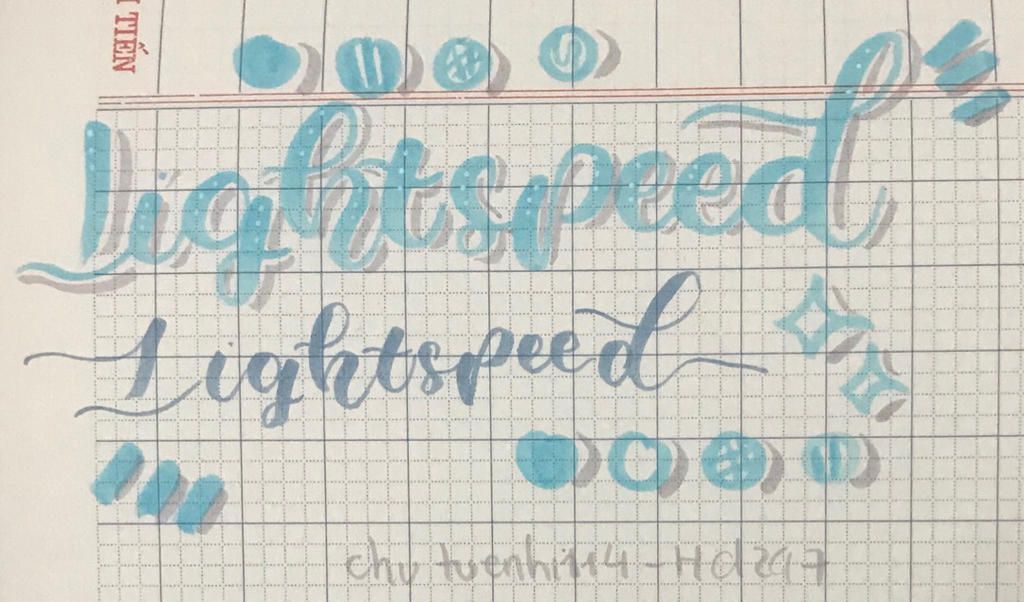 TIẾN
Lightspeed
Lightspeed
chutuenhi1114-Hd247